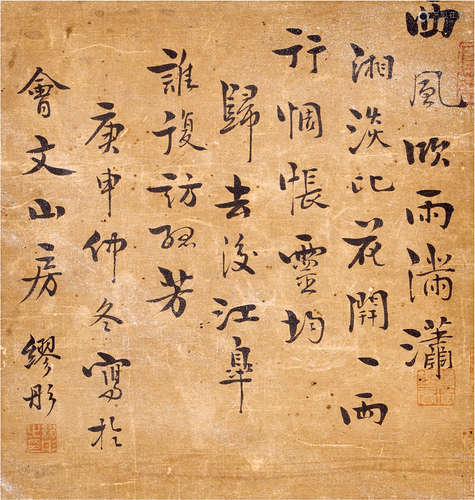 西風吹雨满瀟
湘淡比花開一兩
行惆悵靈均
歸去後江皋
誰復訪孤芳
庚申仲冬寫於
會文山房繆彤